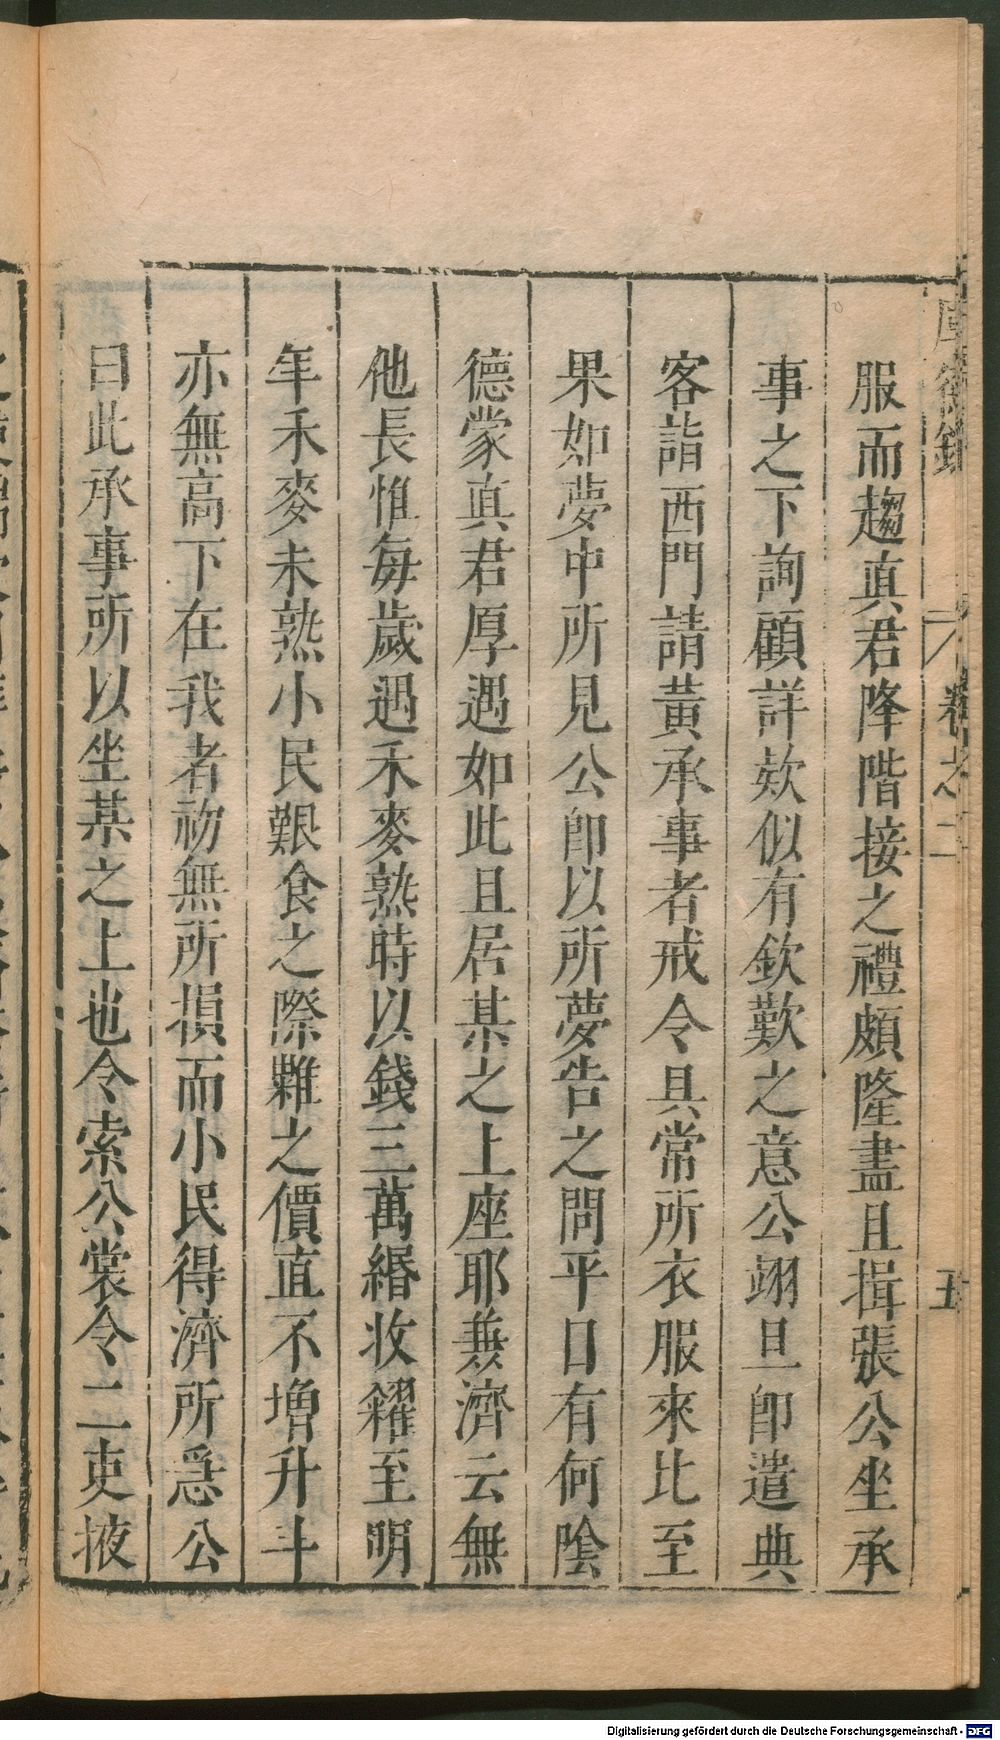 服而趨真君降階接之禮頗隆盡且揖張公坐承
事之下詢顧詳欵似有欽歎之意公翊旦即遣典
客詣西門請黃承事者戒令具常所衣服來比至
果如夢中所見公即以所夢告之問平日有何陰
德蒙真君厚遇如此且居某之上座耶兼濟云無
他長惟每歲遇禾麥熟時以錢三萬緡收糴至明
年禾麥未熟小民艱食之際糶之價直不增升斗
亦無高下在我者初無所損而小民得濟所急公
曰此承事所以坐某之上也令索公裳令二吏掖
卷之二
五
Digitalisierung gefördert durch die Deutsche Forschungsgemeinschaft - DFG